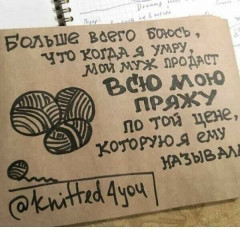 Больше всего боюсь,
что когда я умру,
мой муж продаст
всю мою
пряжу
по той цене,
которую я ему
называла
@knitted4you